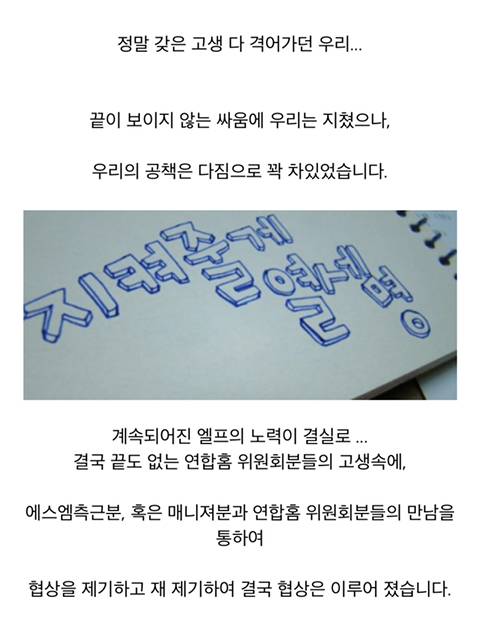 정말 갖은 고생 다 격어가던 우리...
끝이 보이지 않는 싸움에 우리는 지쳤으나,
우리의 공책은 다짐으로 꽉 차있었습니다.
지켜줄게
열세명
계속되어진 엘프의 노력이 결실로 ...
결국 끝도 없는 연합홈 위원회분들의 고생속에,
에스엠측근분, 혹은 매니져분과 연합홈 위원회분들의 만남을
통하여
협상을 제기하고 재 제기하여 결국 협상은 이루어 졌습니다.